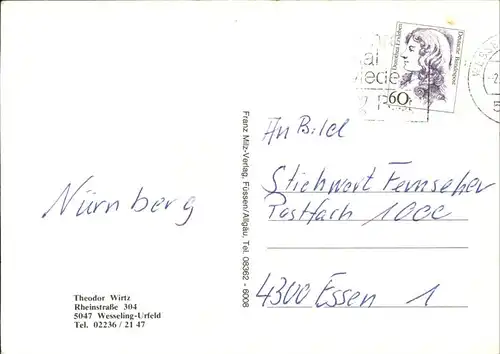 Nürnberg
Theodor Wirtz
Rheinstraße 304
5047 Wesseling-Urfeld
Tel. 02236 / 21 47
Franz Milz-Verlag, Füssen/Allgäu, Tel. 08362 - 6008
Dorothea Erxleben
Deutsche Bundespost
60
An Bild
Stichwort Fernseher
Postfach 1000
4300 Essen 1